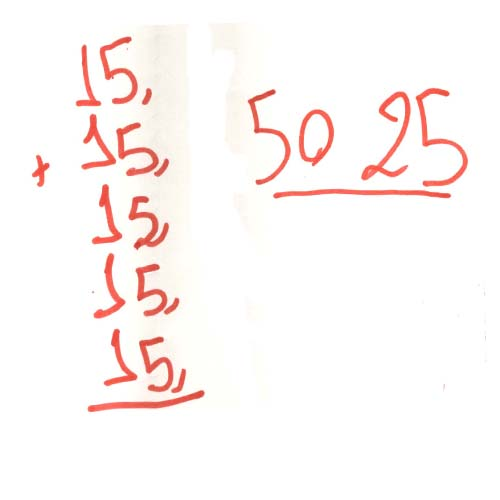 15,
+ 15,
15,
15,
15,
50 25